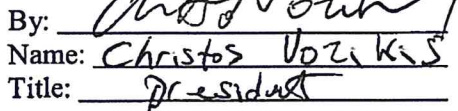 By:
Name: Christos Vozikis
Title: President